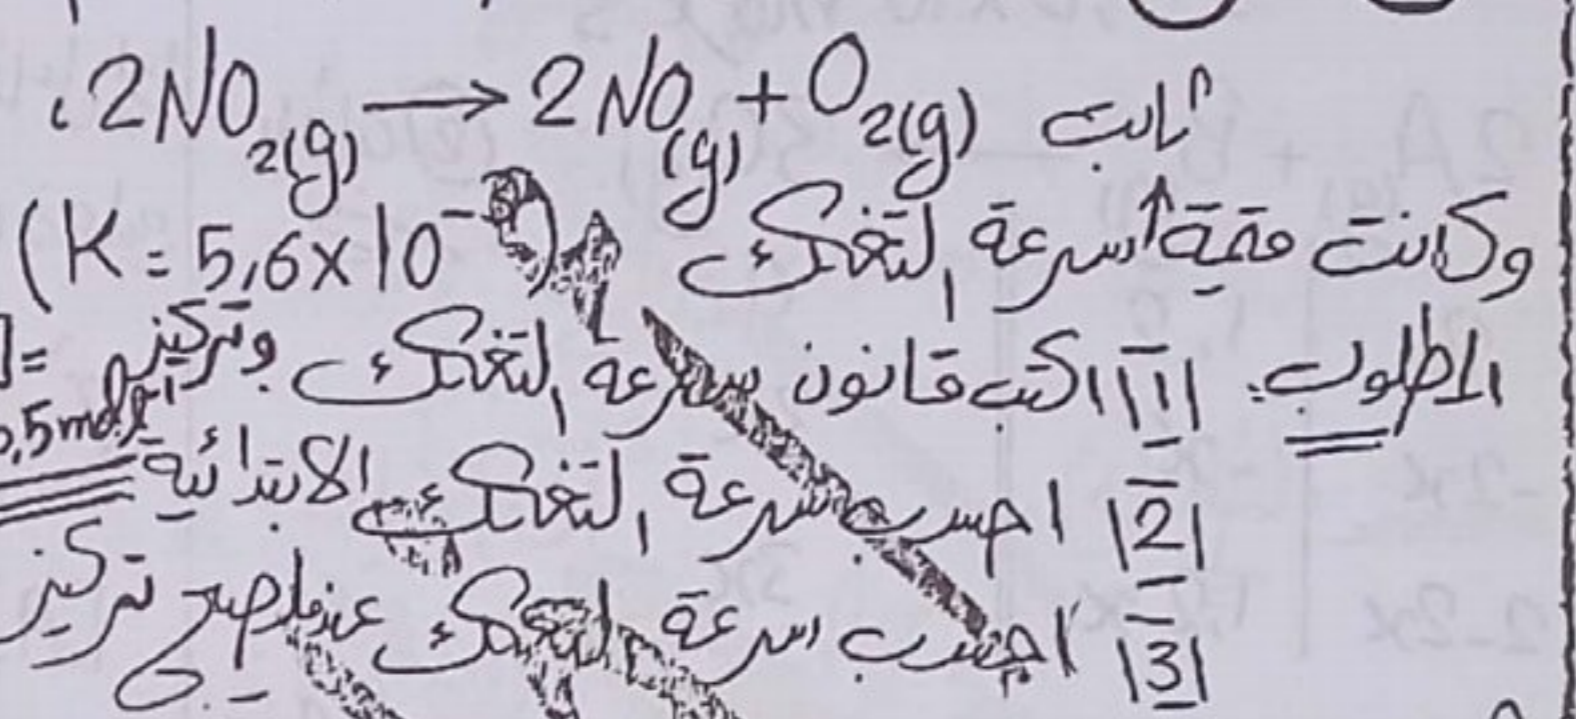 2NO₂(g) → 2NO(g) + O₂(g)
وكانت قيمة ↑ سرعة التفكك (K = 5,6×10⁻
المطلوب: |1| اكتب قانون سرعة التفكك وتركيز =
,5 mol.l⁻¹
|2| احسب سرعة التفكك الابتدائية
|3| احسب سرعة التفكك عندما يصبح تركيز